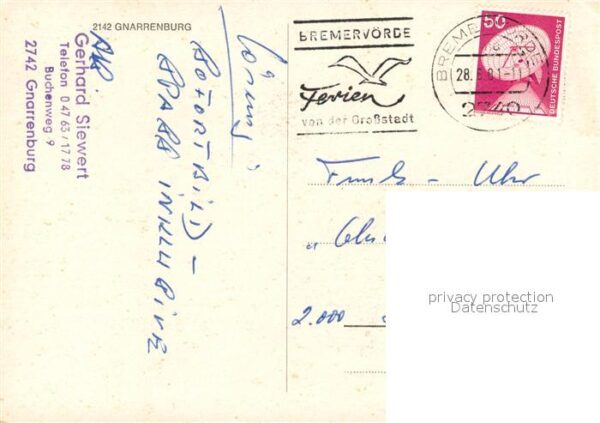 2142 GNARRENBURG
Abs.
Gerhard Siewert
Telefon 0 47 63 / 17 78
Buchenweg 9
2742 Gnarrenburg
Lösung:
SOFORTBILD-
SPASS INKLUSIVE
BREMERVÖRDE
Ferien
von der Großstadt
BREMERVÖRDE
28.6.81-11
2740
50
DEUTSCHE BUNDESPOST
Funk - Uhr
2.000
privacy protection
Datenschutz